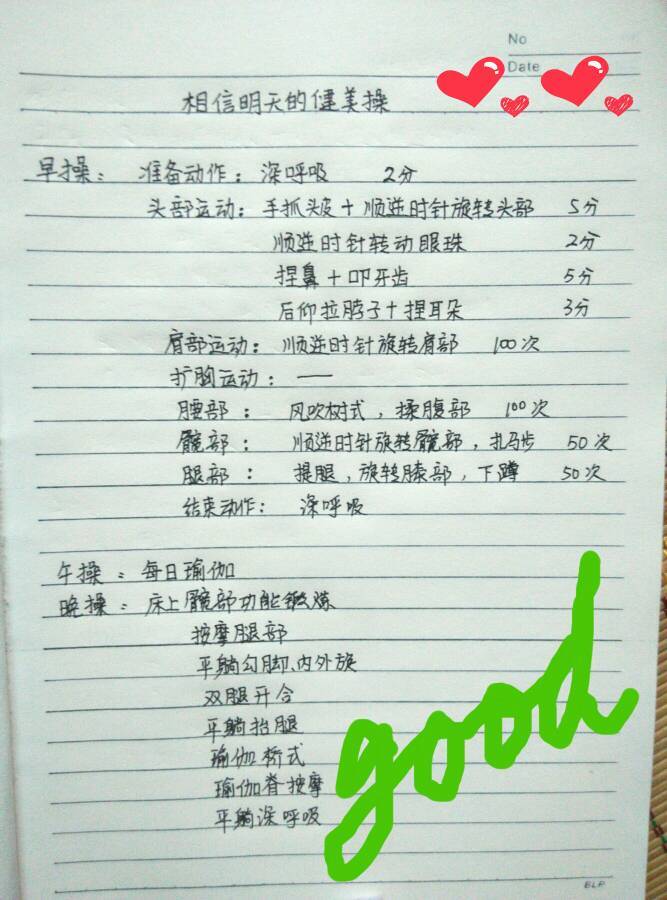 No
Date
相信明天的健美操
早操： 准备动作：深呼吸 2分
头部运动：手抓头皮+顺逆时针旋转头部 5分
顺逆时针转动眼珠 2分
捏鼻+叩牙齿 5分
后仰拉脖子+捏耳朵 3分
肩部运动：顺逆时针旋转肩部 100次
扩胸运动：——
腰部：风吹树式，揉腹部 100次
髋部：顺逆时针旋转髋部，扎马步 50次
腿部：提腿，旋转膝部，下蹲 50次
结束动作：深呼吸
午操：每日瑜伽
晚操：床上髋部功能锻炼
按摩腿部
平躺勾脚、内外旋
双腿开合
平躺抬腿
瑜伽桥式
瑜伽脊按摩
平躺深呼吸
good
BLP